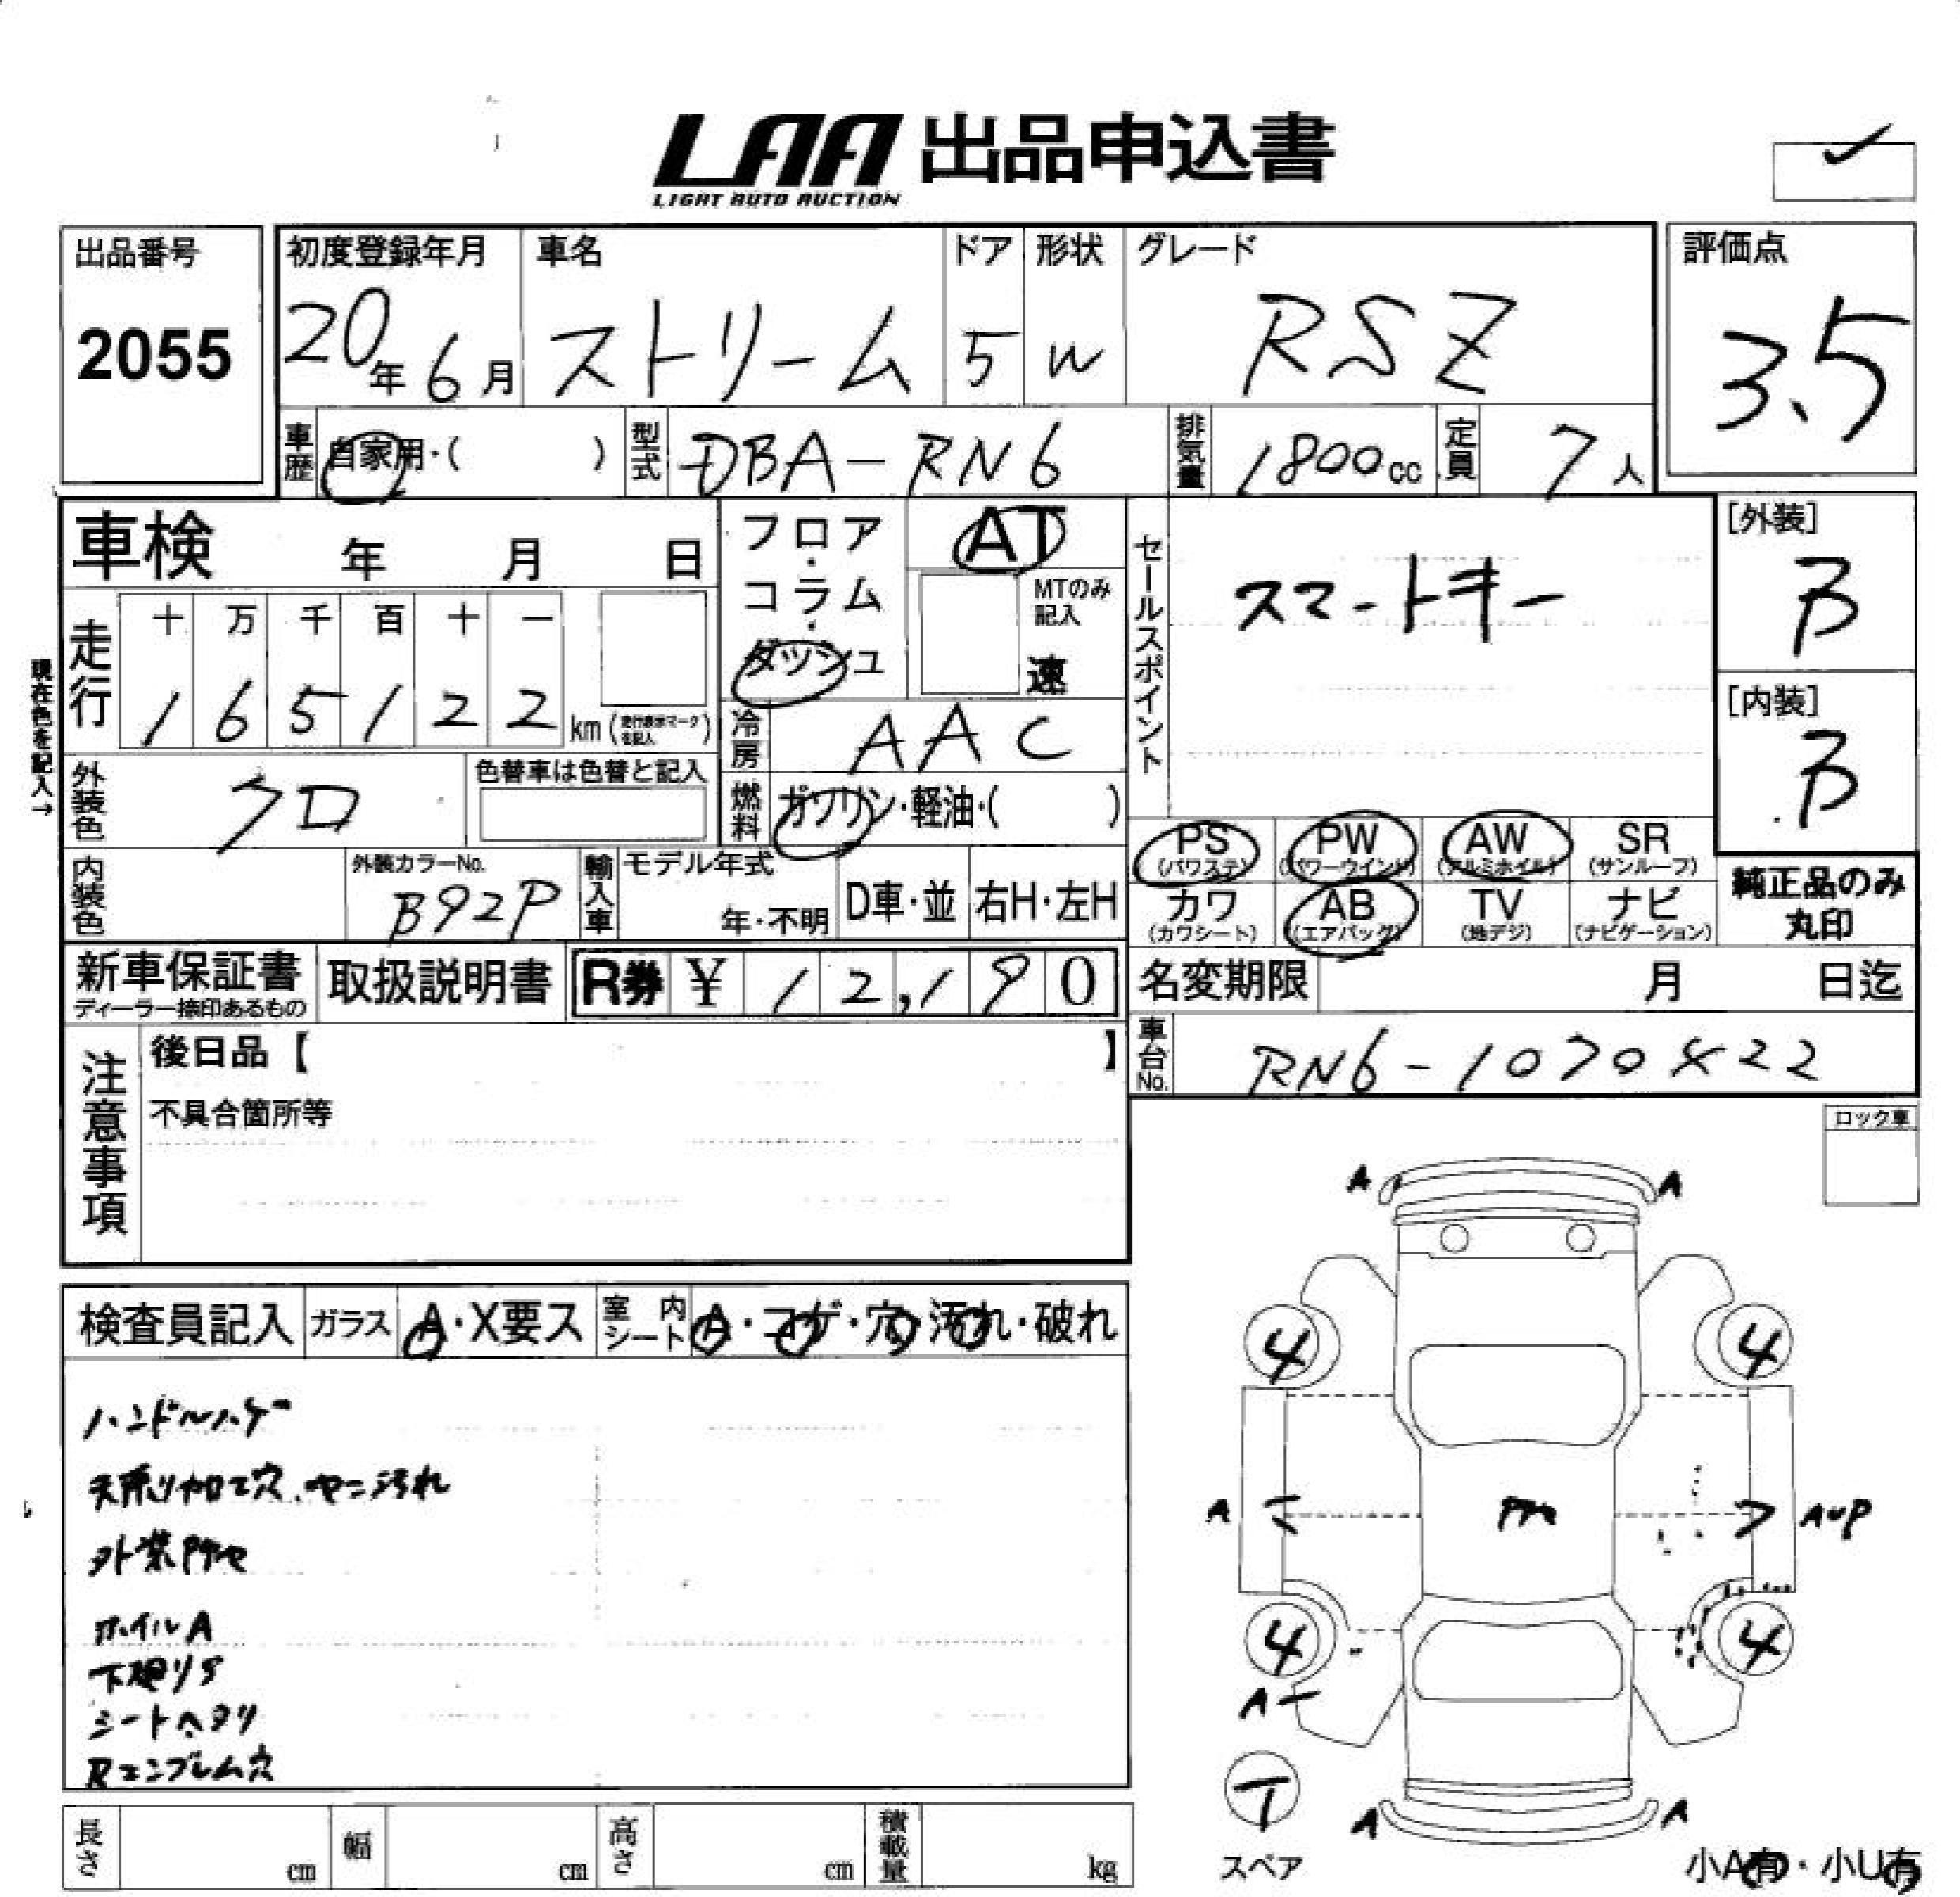 LAA 出品申込書
LIGHT AUTO AUCTION
出品番号
2055
初度登録年月
20年6月
車名
ストリーム
ドア
5
形状
W
グレード
RSZ
評価点
3.5
車歴
自家用・( )
型式
DBA-RN6
排気量
1800cc
定員
7人
車検 年 月 日
フロア・コラム・ダッシュ
AT
MTのみ記入
速
セールスポイント
スマートキー
[外装]
B
[内装]
B
現在色を記入→
走行
十 万 千 百 十 一
1 6 5 1 2 2 km (走行表示マークを記入)
冷房
AAC
外装色
クロ
色替車は色替と記入
燃料
ガソリン・軽油・( )
PS (パワステ)
PW (パワーウインド)
AW (アルミホイル)
SR (サンルーフ)
内装色
外装カラーNo.
B92P
輸入車
モデル年式
年・不明
D車・並
右H・左H
カワ (カワシート)
AB (エアバッグ)
TV (地デジ)
ナビ (ナビゲーション)
純正品のみ丸印
新車保証書
ディーラー捺印あるもの
取扱説明書
R券 ¥ 12,190
名変期限 月 日迄
車台No.
注意事項
後日品【 】
不具合箇所等
ロック車
検査員記入
ガラス
A・X要ス
室内シート
A・コゲ・穴・汚れ・破れ
ハンドルハゲ
天張り加工穴、ヤニ汚れ
ホイルA
下廻りS
シートヘタリ
Rエンブレム穴
A A
4 4
A AUP
4 4
A
T
スペア
A A
小A有・小U有
長さ cm
幅 cm
高さ cm
積載量 kg